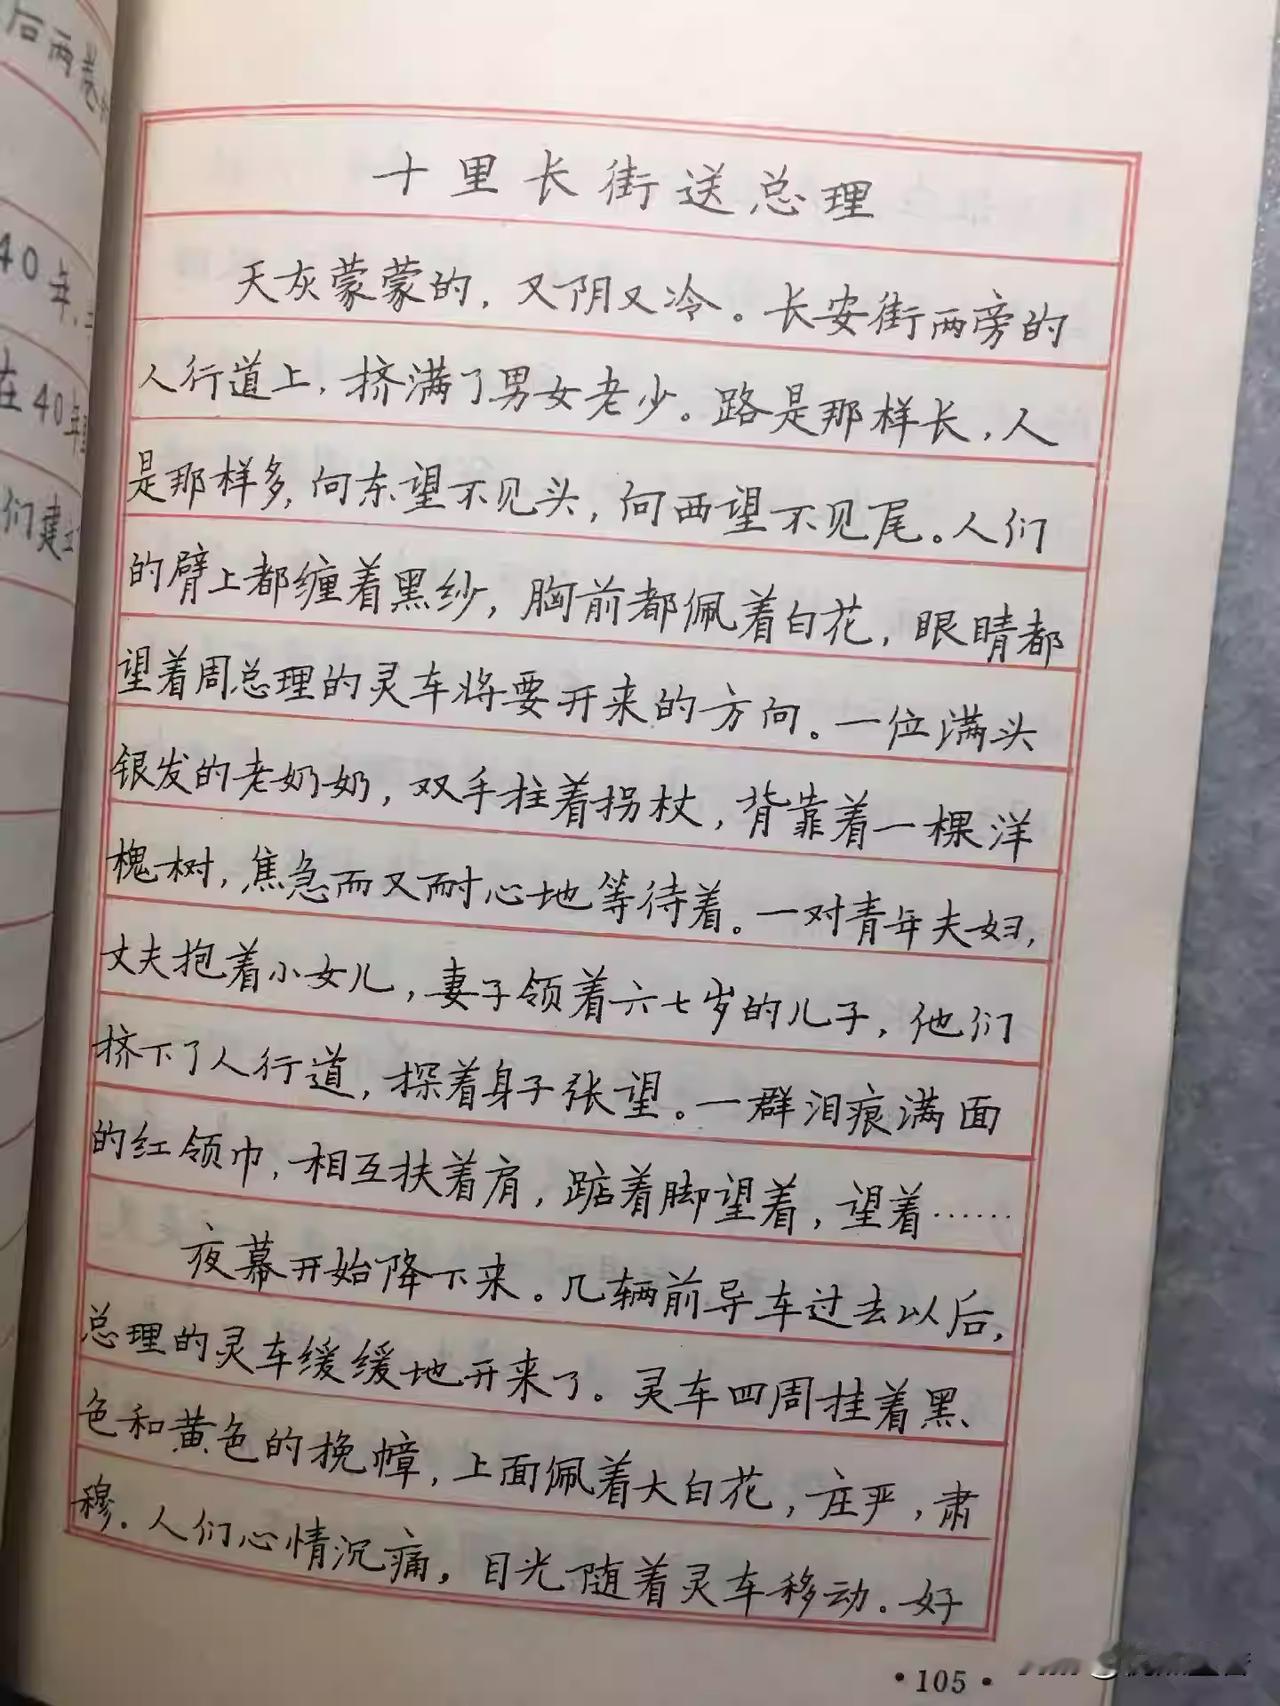 后两
40年,
在40年
们建立
十里长街送总理
天灰蒙蒙的，又阴又冷。长安街两旁的
人行道上，挤满了男女老少。路是那样长，人
是那样多，向东望不见头，向西望不见尾。人们
的臂上都缠着黑纱，胸前都佩着白花，眼睛都
望着周总理的灵车将要开来的方向。一位满头
银发的老奶奶，双手拄着拐杖，背靠着一棵洋
槐树，焦急而又耐心地等待着。一对青年夫妇，
丈夫抱着小女儿，妻子领着六七岁的儿子，他们
挤下了人行道，探着身子张望。一群泪痕满面
的红领巾，相互扶着肩，踮着脚望着，望着……
夜幕开始降下来。几辆前导车过去以后，
总理的灵车缓缓地开来了。灵车四周挂着黑、
色和黄色的挽幛，上面佩着大白花，庄严，肃
穆。人们心情沉痛，目光随着灵车移动。好
·105·